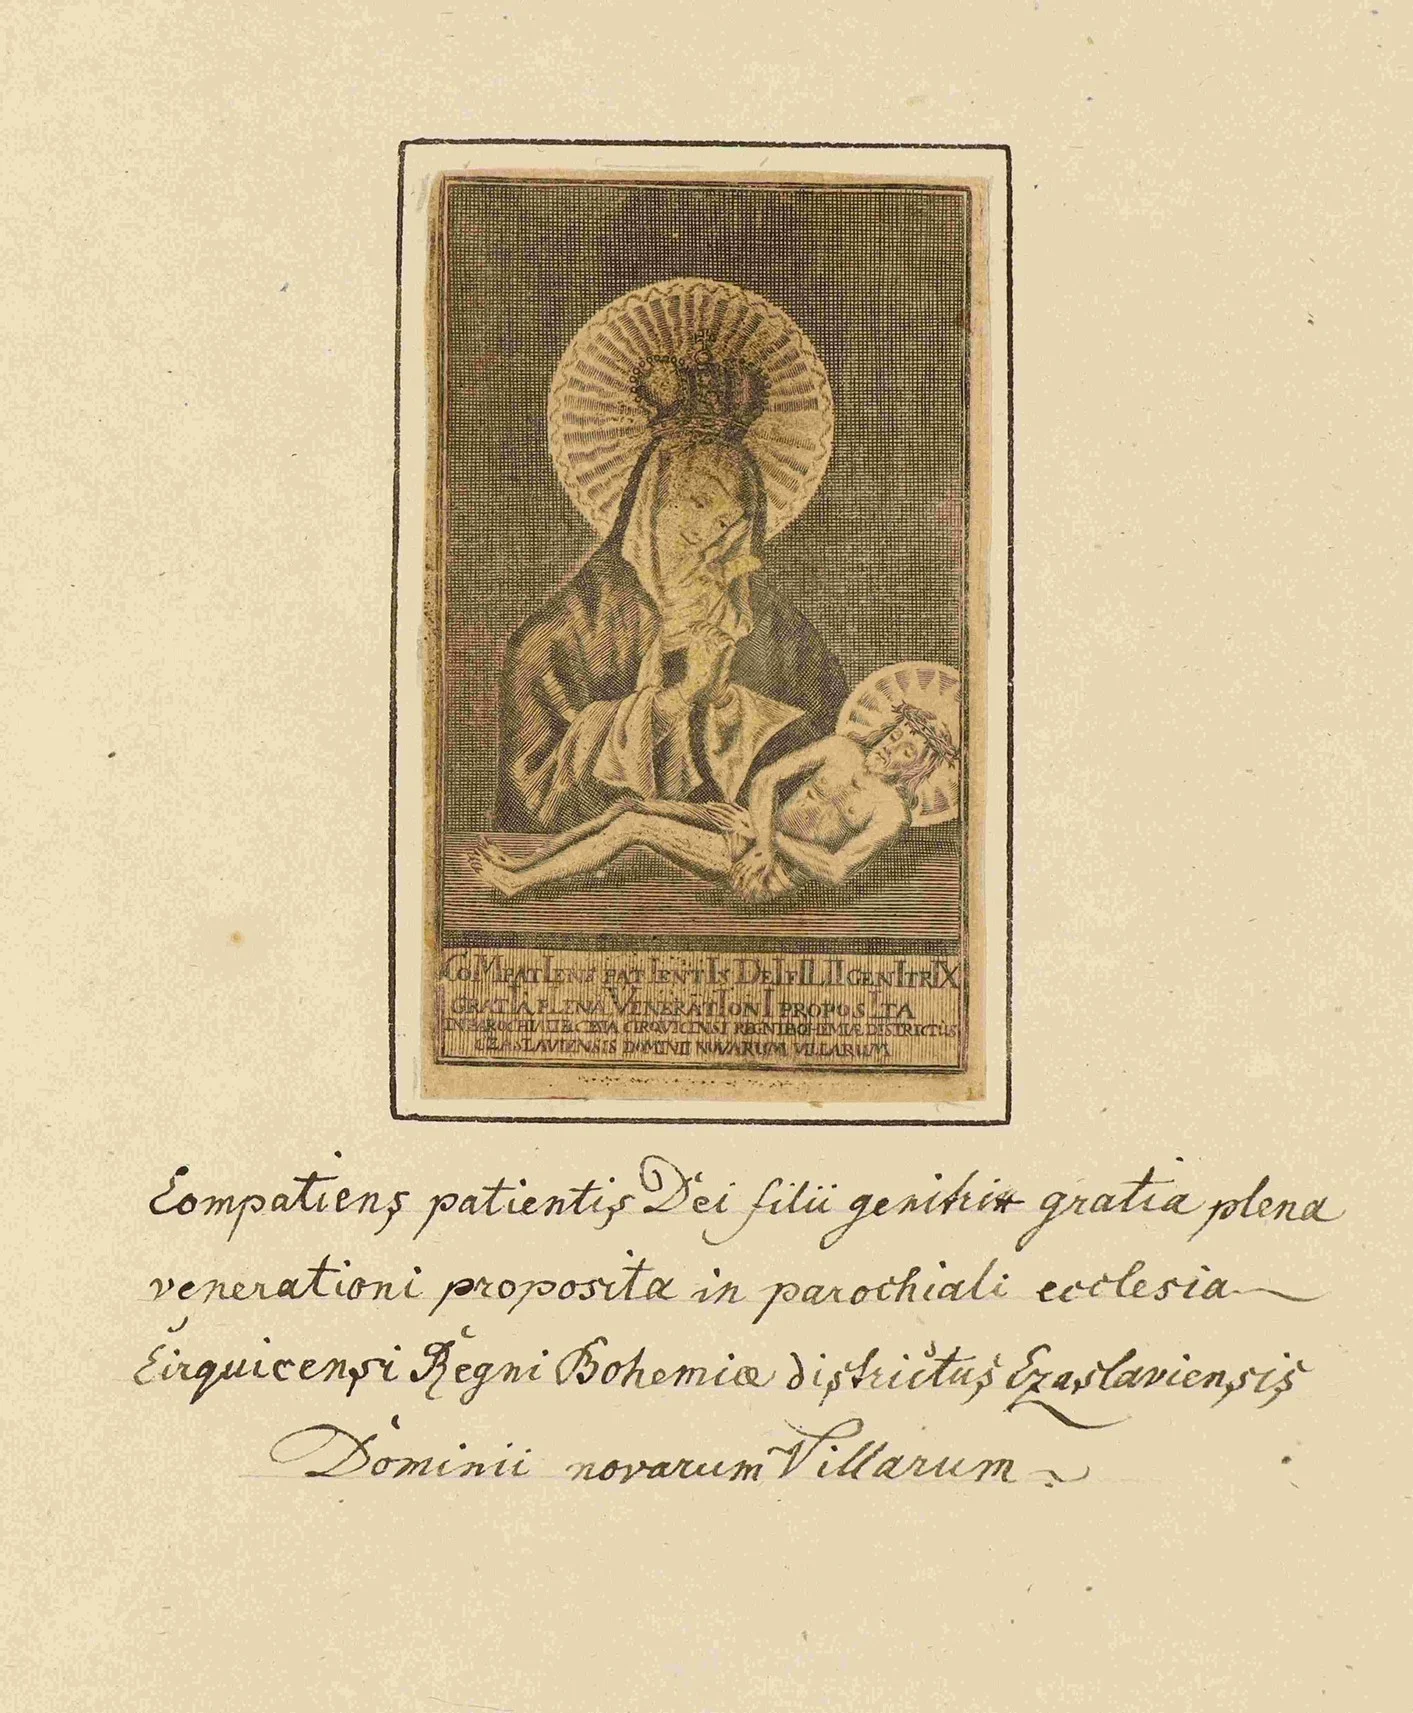 CoMpatIens patIentIs DeI fILII genItrIX
gratIa pLena VeneratIonI proposIta
IN PAROCHIALI ECCLESIA CIRQVICENSI REGNI BOHEMIÆ DISTRICTUS
CZASLAVIENSIS DOMINII NOVARUM VILLARUM
Compatiens patientis Dei filii genitrix gratia plena
venerationi proposita in parochiali ecclesia
Cirquicensi Regni Bohemiæ districtus Czaslaviensis
Dominii novarum Villarum